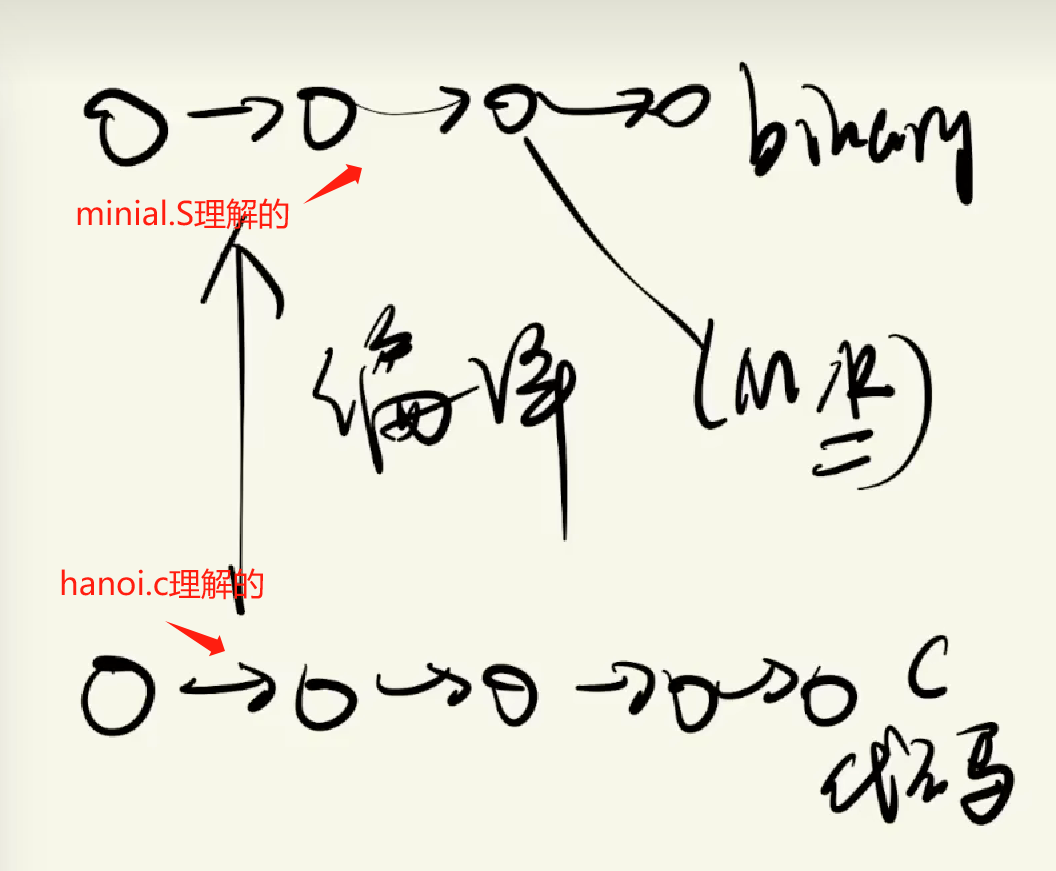 binary
minial.S理解的
编译
(M,R)
hanoi.c理解的
C
代码